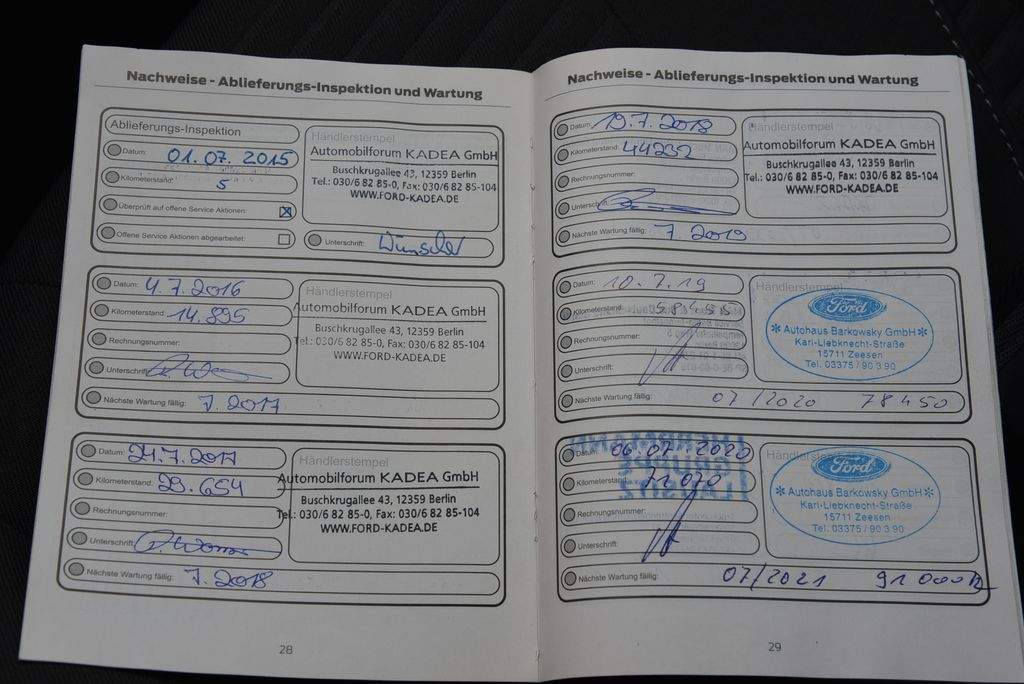 Nachweise - Ablieferungs-Inspektion und Wartung
Ablieferungs-Inspektion
Datum: 01.07.2015
Kilometerstand: 5
Überprüft auf offene Service Aktionen: ☒
Offene Service Aktionen abgearbeitet: ☐
Händlerstempel
Automobilforum KADEA GmbH
Buschkrugallee 43, 12359 Berlin
Tel.: 030/6 82 85-0, Fax: 030/6 82 85-104
WWW.FORD-KADEA.DE
Unterschrift: Wünscher
Datum: 4.7.2016
Kilometerstand: 14.895
Rechnungsnummer:
Unterschrift:
Nächste Wartung fällig: 7.2017
Händlerstempel
Automobilforum KADEA GmbH
Buschkrugallee 43, 12359 Berlin
Tel.: 030/6 82 85-0, Fax: 030/6 82 85-104
WWW.FORD-KADEA.DE
Datum: 24.7.2017
Kilometerstand: 29.654
Rechnungsnummer:
Unterschrift:
Nächste Wartung fällig: 7.2018
Händlerstempel
Automobilforum KADEA GmbH
Buschkrugallee 43, 12359 Berlin
Tel.: 030/6 82 85-0, Fax: 030/6 82 85-104
WWW.FORD-KADEA.DE
28
Nachweise - Ablieferungs-Inspektion und Wartung
Datum: 19.7.2018
Kilometerstand: 44232
Rechnungsnummer:
Unterschrift:
Nächste Wartung fällig: 7.2019
Händlerstempel
Automobilforum KADEA GmbH
Buschkrugallee 43, 12359 Berlin
Tel.: 030/6 82 85-0, Fax: 030/6 82 85-104
WWW.FORD-KADEA.DE
Datum: 10.7.19
Kilometerstand: 58455
Rechnungsnummer:
Unterschrift:
Nächste Wartung fällig: 07/2020 78450
Händlerstempel
Ford
* Autohaus Barkowsky GmbH *
Karl-Liebknecht-Straße
15711 Zeesen
Tel. 03375 / 90 3 90
Datum: 06.07.2020
Kilometerstand: 71070
Rechnungsnummer:
Unterschrift:
Nächste Wartung fällig: 07/2021 91000
Händlerstempel
Ford
* Autohaus Barkowsky GmbH *
Karl-Liebknecht-Straße
15711 Zeesen
Tel. 03375 / 90 3 90
29